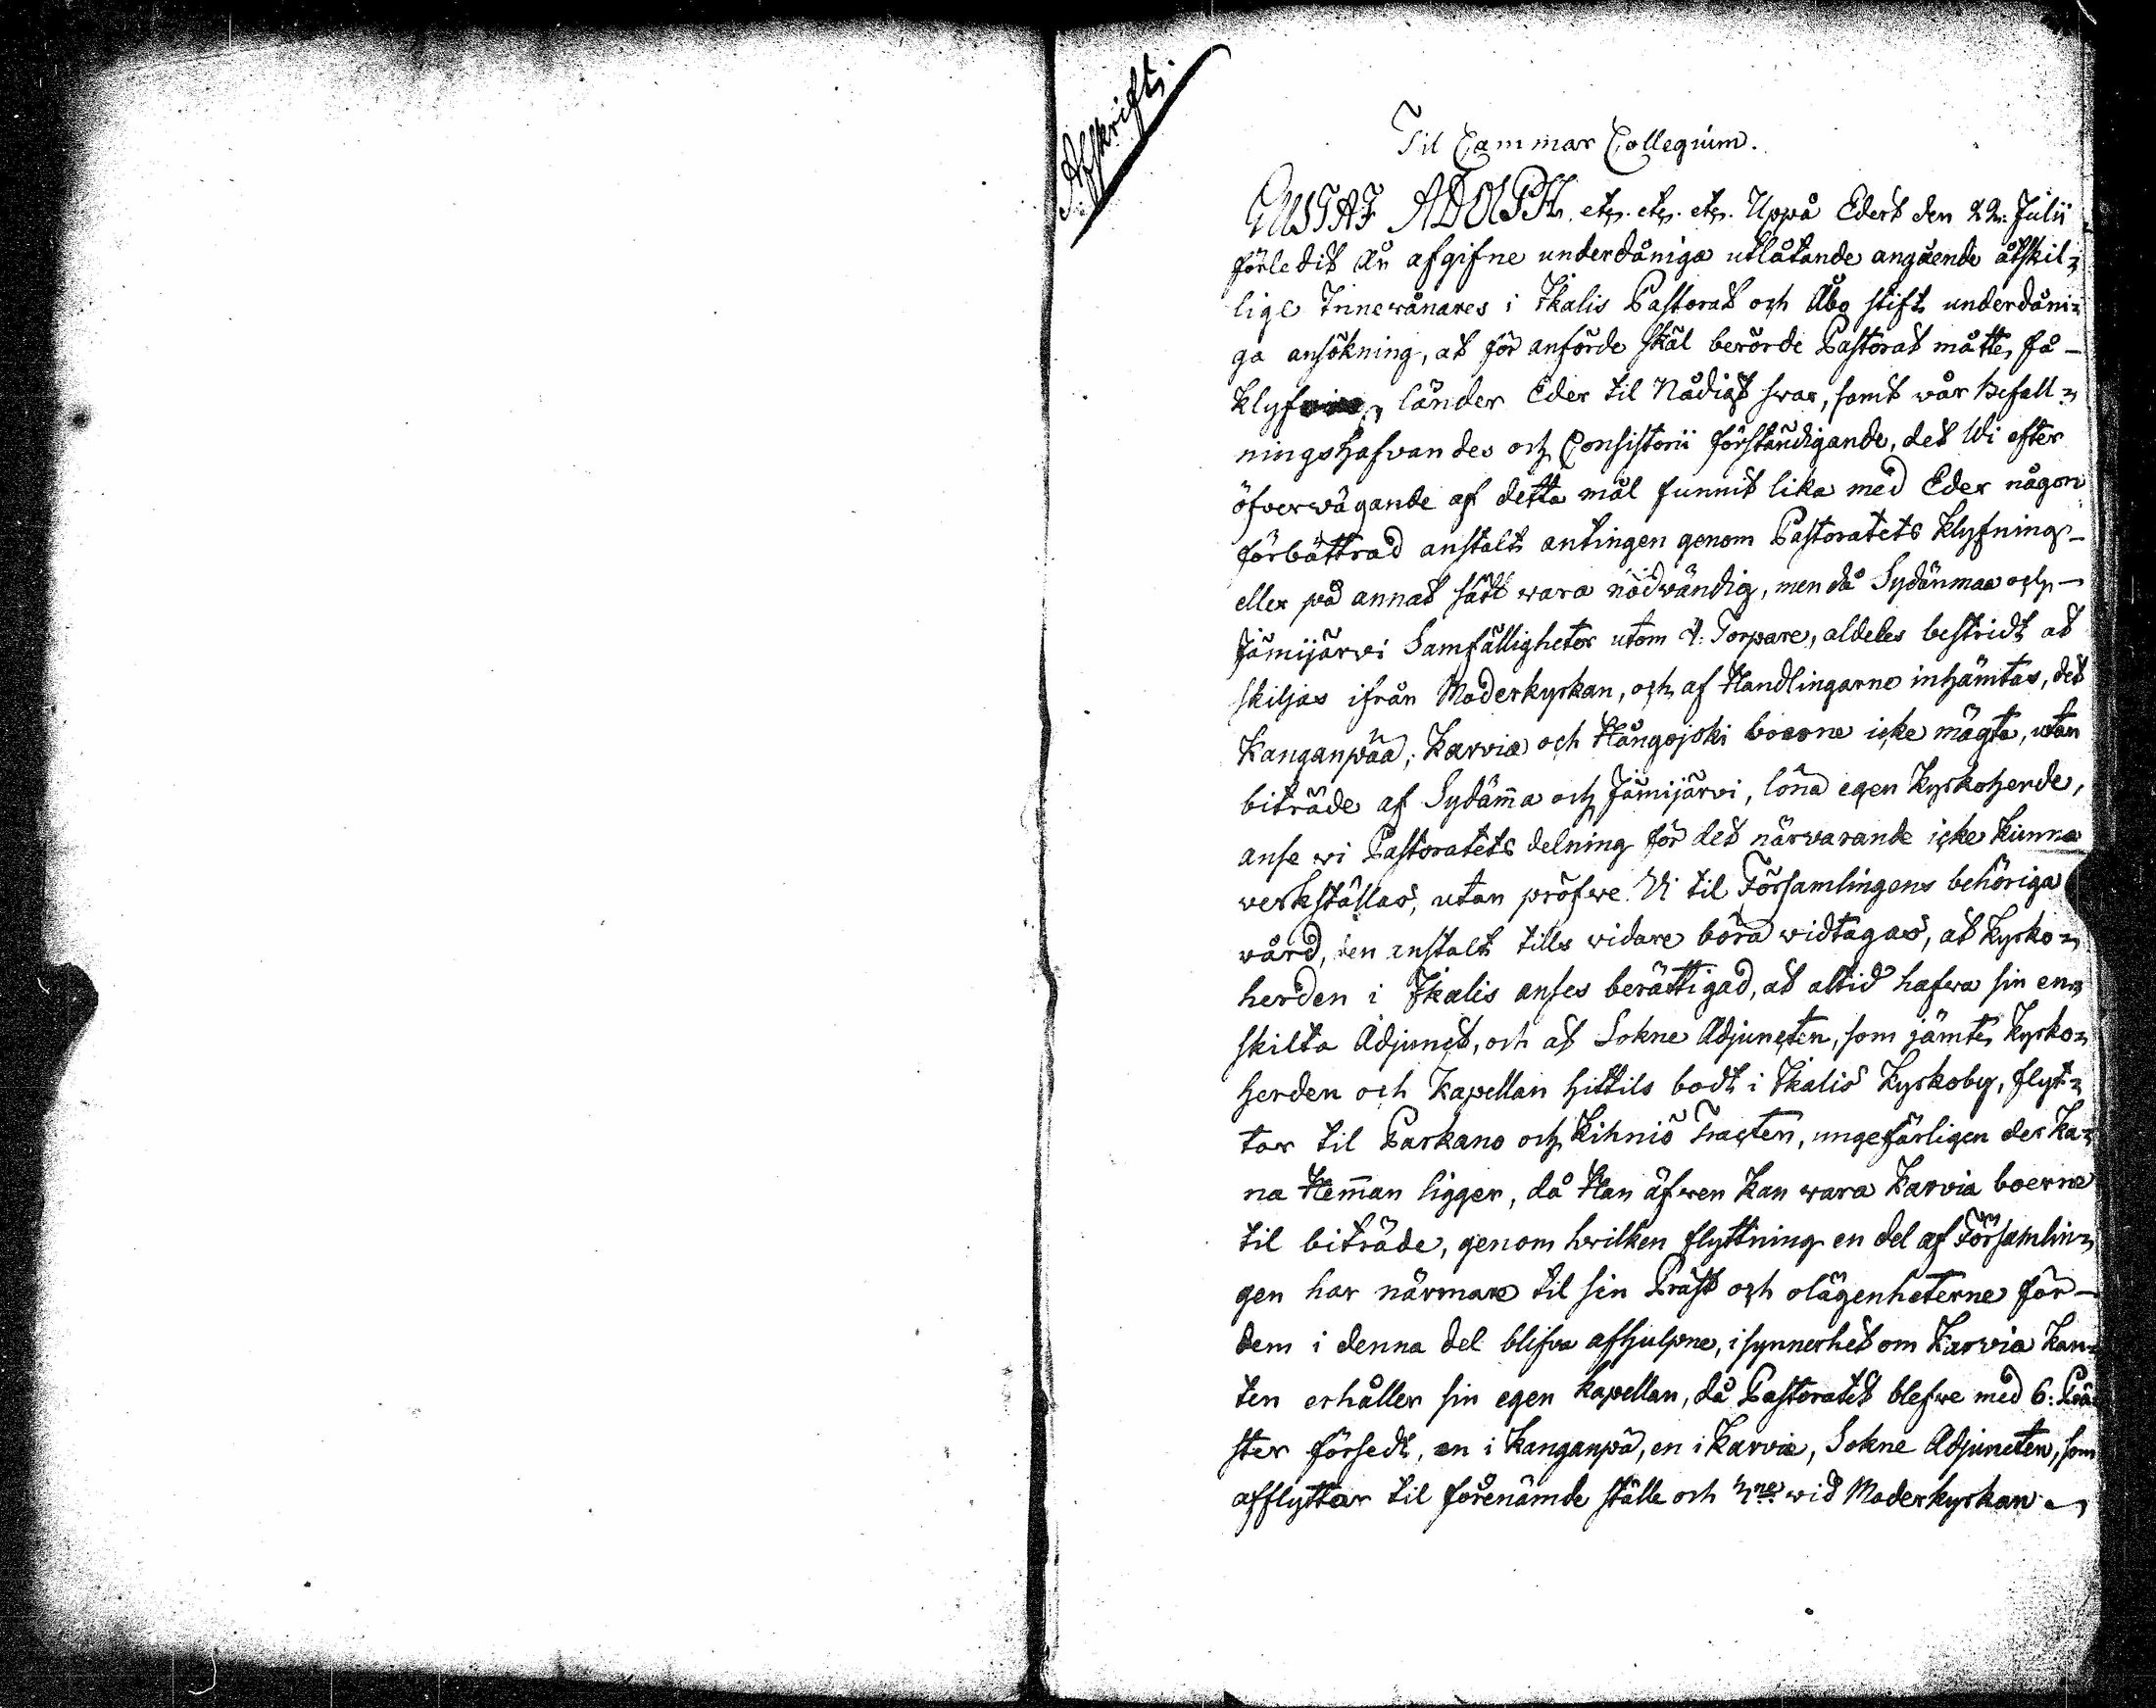 Afskrift.
Til Cammar Collegium.
GUSTAF ADOLPH. etc. etc. etc. Uppå Edert den 22: Julii
förledit år afgifne underdåniga utlåtande angående åtskil=
lige Innevånares i Ikalis Pastorat och Åbo stift underdåni=
ga ansökning, at för anförde skäl berörde Pastorat måtte få
klyf länder Eder til Nådigt svar, samt vår Befall=
ningshafvandes och Consistorii förständigande, det Wi efter
öfvervägande af detta mål funnit lika med Eder någon
förbättrad anstalt antingen genom Pastoratets klyfning
eller på annat sätt vara nödvändig, men då Sydänmaa och
Jämijärvi Samfälligheter utom 4: Torpare, aldeles bestridt at
skiljas ifrån Moderkyrkan, och af Handlingarne inhämtas, det
Kanganpää, Karvia och Hångojoki boerne icke mägta, utan
biträde af Sydäm̄a och Jämijärvi, löna egen Kyrkoherde,
anse vi Pastoratets delning för det närvarande icke kunna
verkställas, utan pröfve Vi til Församlingens behöriga
vård, den anstalt tills vidare böra vidtagas, at Kyrko=
herden i Ikalis anses berättigad, at altid hafva sin en=
skilta Adjunct, och at Sokne Adjuncten, som jämte Kyrko=
herden och Kapellan hittils bodt i Ikalis Kyrkoby, flyt=
tar til Parkano och Kihniö Tracten, ungefärligen der Ka=
na Hem̄an ligger, då Han äfven kan vara Karvia boerne
til biträde, genom hvilken flyttning en del af Församlin=
gen har närmare til sin Präst och olägenheterne för
dem i denna del blifva afhulpne, i synnerhet om Karvia Kan=
ten erhåller sin egen Kapellan, då Pastoratet blefve med 6: Prä=
ster försedt, en i Kanganpä, en i Karvia, Sokne Adjuncten, som
afflyttar til förenämde ställe och 3ne vid Moderkyrkan